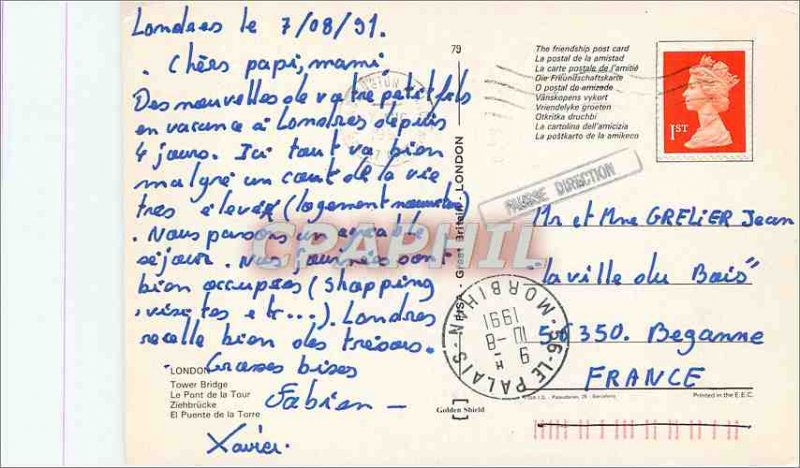 Londres le 7/08/91.
. Chers papi, mami
Des nouvelles de votre petit fils
en vacance à Londres depuis
4 jours. Ici tout va bien
malgré un cout de la vie
très élevé (logement nourriture)
. Nous passons un agréable
séjour. Nos journées sont
bien occupées (shapping
, visites etr...). Londres
recelle bien des trésors.
Grosses bises
Fabien -
Xavier.
LONDON
Tower Bridge
Le Pont de la Tour
Ziehbrücke
El Puente de la Torre
79
Great Britain - LONDON
The friendship post card
La postal de la amistad
La carte postale de l'amitié
Die Freundschaftskarte
O postal da amizade
Vänskapens vykort
Vriendelyke groeten
Otkritka druchbi
La cartolina dell'amicizia
La poŝtkarto de la amikeco
1ST
FAUSSE DIRECTION
Mr et Mme GRELIER Jean
"la ville du Bois"
56350. Beganne
FRANCE
56-LE PALAIS - MORBIHAN
9 H
10-8
1991
Golden Shield
Printed in the E.E.C.
CPAPHIL